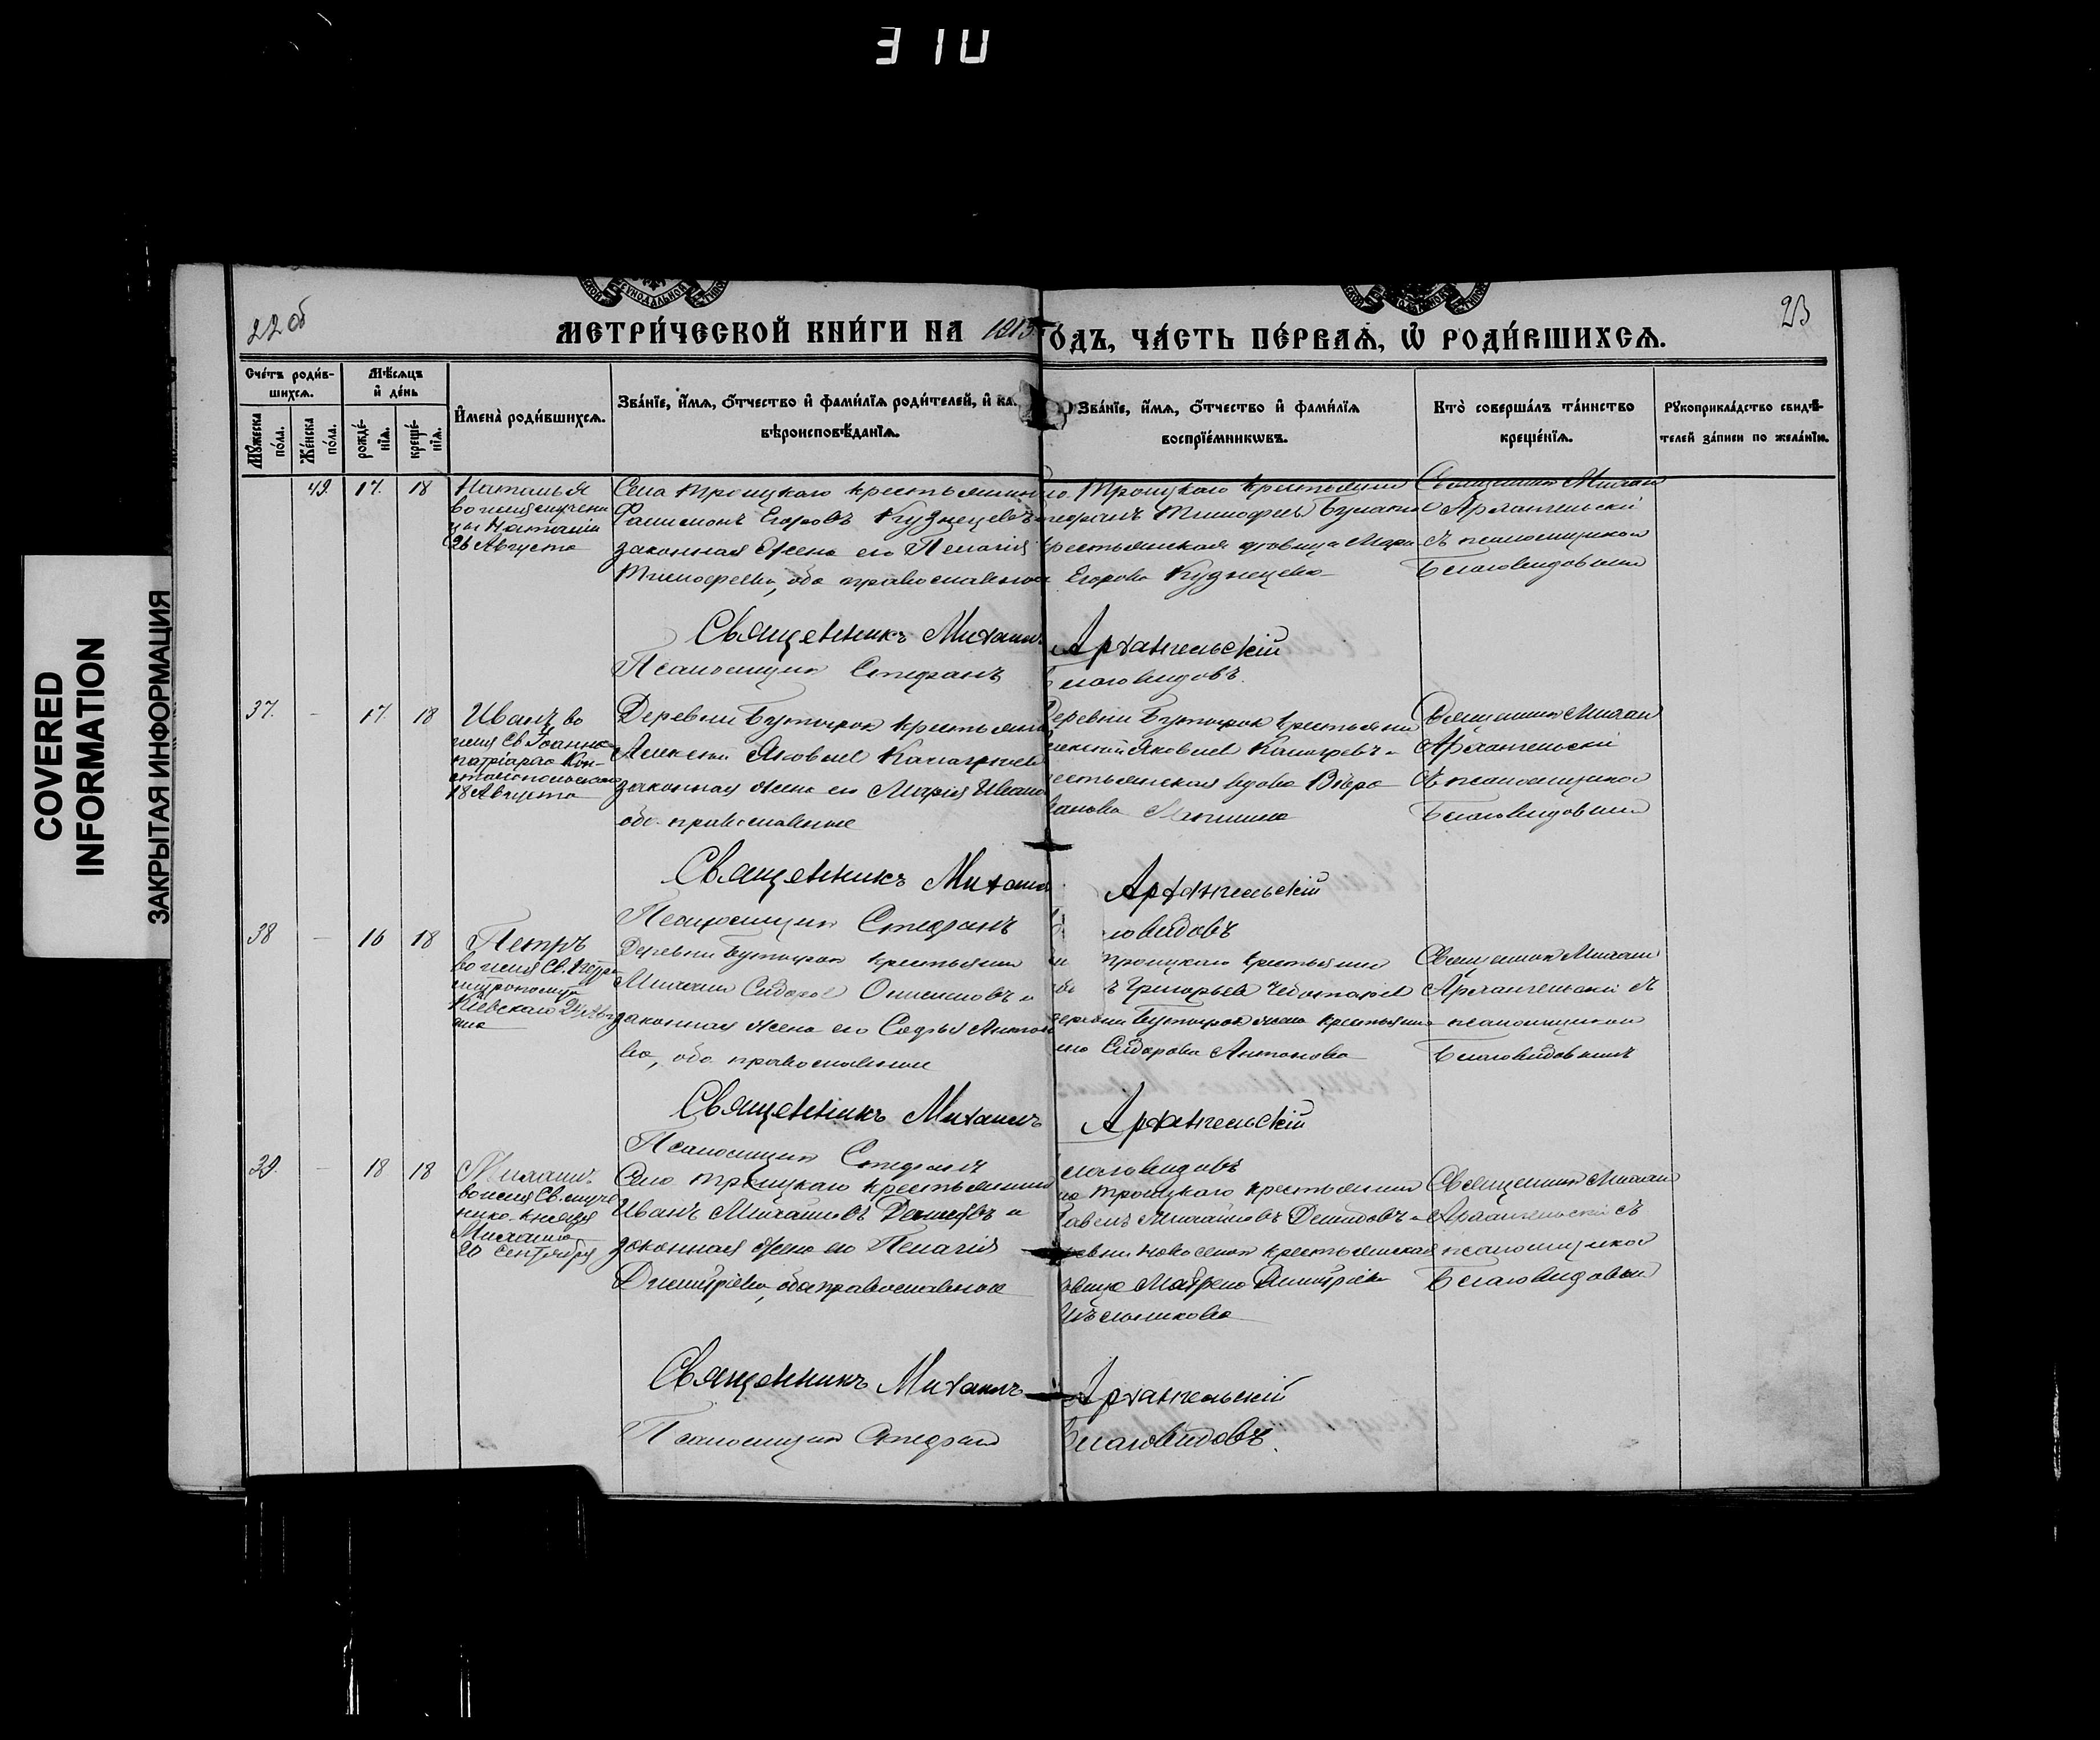 310
COVERED
INFORMATION
ЗАКРЫТАЯ ИНФОРМАЦИЯ
22 об
23
МЕТРИ́ЧЕСКОЙ КНИ́ГИ НА
О́ДЪ, ЧА́СТЬ ПЕ́РВАѦ, Ѿ РОДИ́ВШИХСѦ.
Сче́тъ роди́в-
шихсѧ.
Мѣ́сѧцъ
и҆ де́нь
Мꙋ́жеска
по́ла.
Же́нска
по́ла.
рожде́-
нїѧ.
креще́-
нїѧ.
И҆мена̀ роди́вшихсѧ.
Зва́нїе, и҆́мѧ, ѻ҆́тчество и҆ фами́лїѧ роди́телей, и҆ ка
вѣроисповѣ́данїѧ.
Зва́нїе, и҆́мѧ, ѻ҆́тчество и҆ фами́лїѧ
воспрїе́мникѡвъ.
Кто̀ соверша́лъ та́инство
креще́нїѧ.
Рꙋкоприкла́дство свидѣ́-
телей за́писи по жела́нїю.
49. 17. 18
Наталья
во имя мучени
цы Наталіи
26 Августа
Села Троицкаго крестьянин
Филимонъ Егоровъ Кузнецовъ
законная жена его Пелагія
Тимофеева, оба православные
Троицкаго крестьянин
Тимофеев
крестьянская девица Мари
Егорова Кузнецова
Священник Михаил
Архангельскій
съ псаломщиком
Благовидовым
Священникъ Михаилъ Архангельскій
Псаломщик Стефанъ Благовидовъ.
37. – 17. 18
Иванъ во
имя Св Іоанна
патріарха Кон-
стантинопольскаго
18 Августа
Деревни Бутырок крестьянин
Алексей Яковлев
законная жена его Марія Иванов
оба православные
Деревни Бутырок крестьянин
Алексей Яковлев
крестьянская вдова Вѣра
Иванова
Священник Михаил
Архангельскій
съ псаломщиком
Благовидовым
Священникъ Михаил Архангельскій
Псаломщик Стефанъ Благовидовъ
38 – 16 18
Петръ
во имя Св. Петра
митрополита
Кіевскаго 24 Авгу
ста
Деревни Бутырок крестьянин
Михаил Сидоров Онисимовъ и
законная жена его Софья Антоно
ва, оба православные
Троицкаго крестьянин
Григорьев Чеботарев
деревни Бутырок жена крестьянина
Сидорова Антонова
Священник Михаил
Архангельскій съ
псаломщиком
Благовидовымъ
Священникъ Михаилъ Архангельскій
Псаломщик Стефанъ Благовидовъ
39. – 18 18
Михаилъ
во имя Св. муче
ника князя
Михаила
20 Сентября
Села Троицкаго крестьянин
Иванъ Михайловъ Демидовъ и
законная жена его Пелагія
Дмитріева, оба православные
Троицкаго крестьянин
Павелъ Михайловъ Демидовъ и
крестьянская
девица Матрена Дмитріева
Священник Михаил
Архангельскій съ
псаломщиком
Благовидовым
Священникъ Михаилъ Архангельскій
Псаломщик Стефан Благовидовъ.